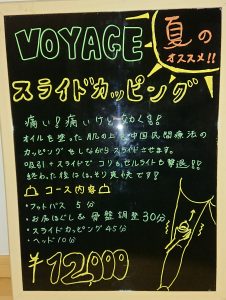 VOYAGE
夏の
オススメ!!
スライドカッピング
痛い!痛いけど効くぅ!!
オイルを塗った肌の上を中国民間療法の
カッピングをしながらスライドさせます。
吸引+スライドでコリもセルライトも撃退!!
終わった後にはスッキリ爽快です!
コース内容
・フットバス 5分
・お尻ほぐし&骨盤調整30分
・スライドカッピング45分
・ヘッド10分
¥12,000